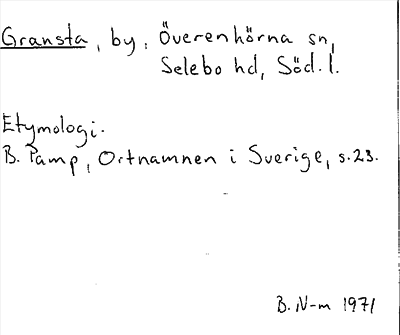 Gransta, by, Överenhörna sn,
Selebo hd, Söd. l.
Etymologi.
B. Pamp, Ortnamnen i Sverige, s. 23.
B. N-m 1971